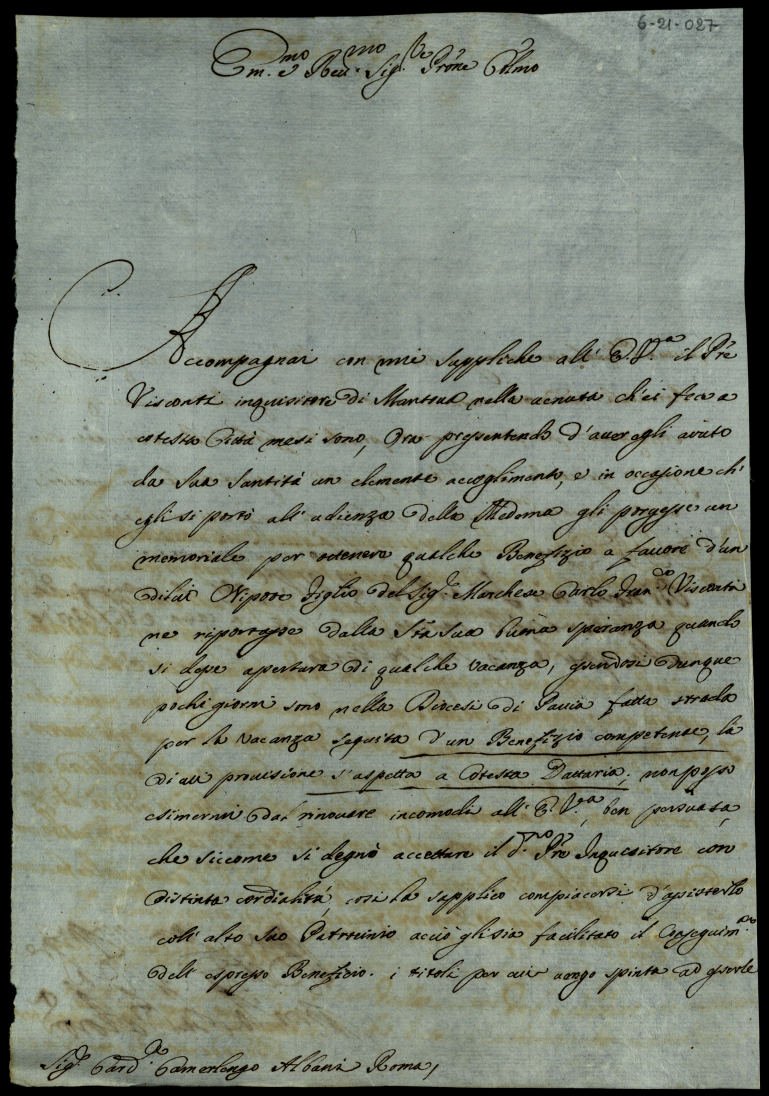 6-21-027
Em.mo e Reu.mo Sig.re Prõne Colmo
Accompagnai con mie suppliche all' E.V.a il Prẽ
Visconti inquisitore di Mantoua nella uenuta ch'ei fece a
cotesta Città mesi sono, Ora presentendo d'auer egli auuto
da Sua Santità un clemente accoglimento, e in occasione ch'
egli si portò all' udienza della Medema gli porgesse un
memoriale per ottenere qualche Benefizio a fauore d'un
di lui Nipote figlio del Sig.r Marchese Carlo Fran.co Visconti
ne riportasse dalla S.tà Sua buona speranza quando
si desse apertura di qualche vacanza, essendosi dunque
pochi giorni sono nella Diocesi di Pauia fatta strada
per la vacanza seguita d'un Benefizio competente, la
di cui prouisione s'aspetta a Cotesta Dattaria, non posso
esimermi dal rinouare incomodi all' E.V.a, ben persuasa,
che siccome si degnò accettare il d.mo Prẽ Inquisitore con
distinta cordialità, così la supplico compiacersi d'assisterlo
coll' alto suo Patrocinio acciò gli sia facilitato il Conseguim.to
dell' espresso Beneficio. i titoli per cui uengo spinta ad esserle
Sig.r Card.le Camerlengo Albani Roma,